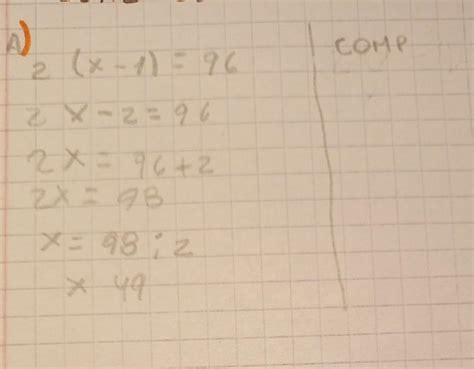 A)
2 (x-1) = 96
COMP
2 x - 2 = 96
2x = 96+2
2x = 98
x = 98 : 2
x 49